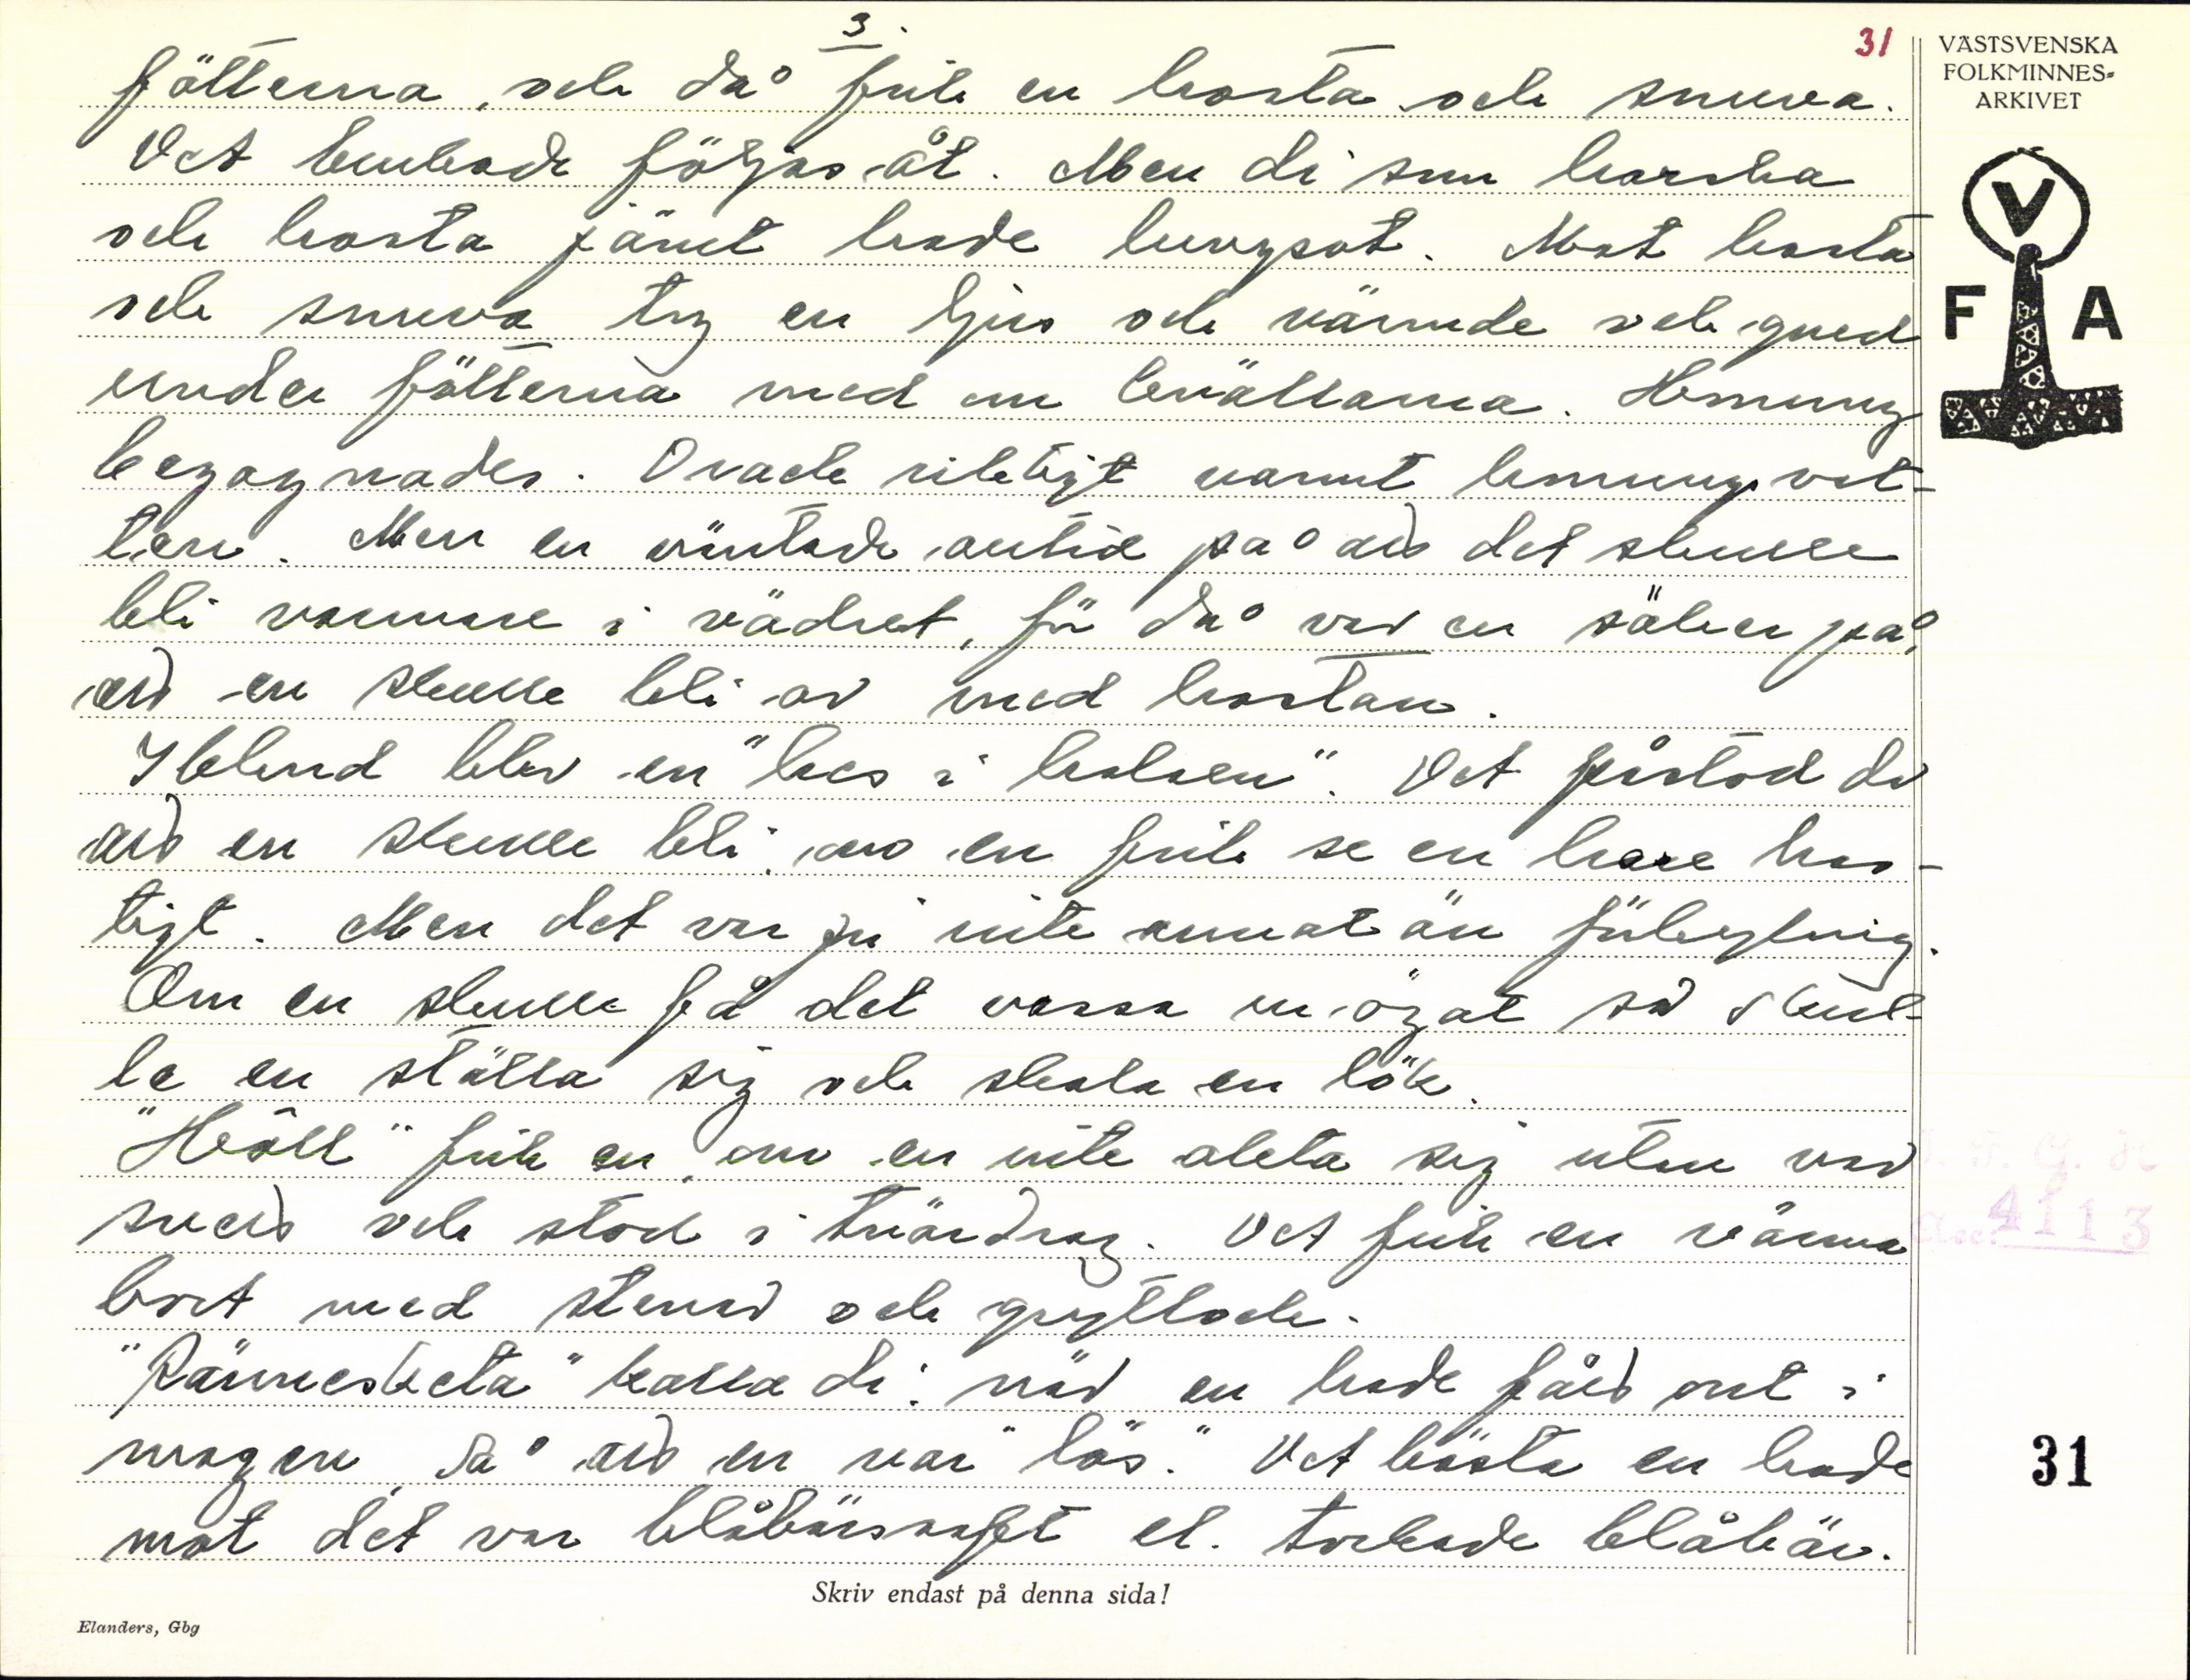 3.
31
fötterna, och då fick en hosta och snuva.
Det brukade följas åt. Men di som harska
och hosta jämt hade lungsot. Mot hosta
och snuva tog en ljus och värmde och gned
under fötterna med om kvällarna. Honung
begagnades. Drack riktigt varmt honungsvat-
ten. Men en väntade alltid på att det skulle
bli varmare i vädret, för då var en säker på,
att en skulle bli av med hostan.
Ibland blev en "hes i halsen". Det påstod di
att en skulle bli, om en fick se en hare has-
tigt. Men det var ju inte annat än förkylning.
Om en skulle få det vassa ur ögat så skul-
le en ställa sig och skala en lök.
"Håll" fick en, om en inte akta sig utan var
svett och stod i tvärdrag. Det fick en värma
bort med stenar och grytlock.
"Rännesketa" kalla di, när en hade fått ont i
magen, så att en var "lös." Det bästa en hade
mot det var blåbärssaft el. torkade blåbär.
VÄSTSVENSKA
FOLKMINNES-
ARKIVET
V
F A
4113
31
Skriv endast på denna sida!
Elanders, Gbg